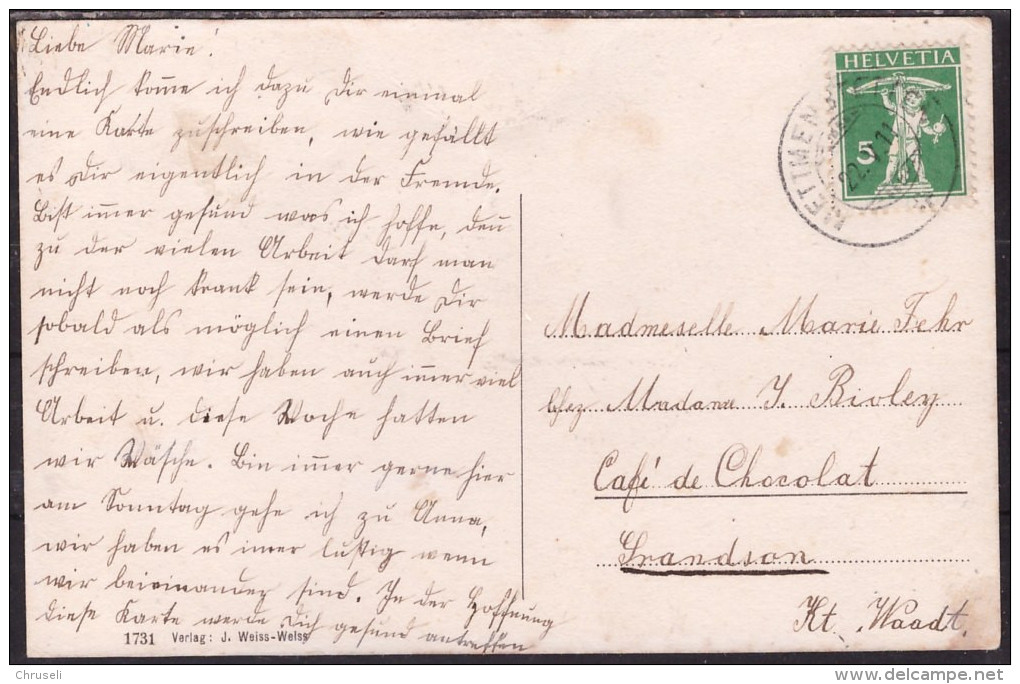 Liebe Marie!
Endlich kom̄e ich dazu Dir einmal
eine Karte zuschreiben, wie gefällt
es Dir eigentlich in der Fremde.
Bist im̄er gesund was ich hoffe, den̄
zu der vielen Arbeit darf man
nicht noch krank sein, werde Dir
sobald als möglich einen Brief
schreiben, wir haben auch im̄er viel
Arbeit u. diese Woche hatten
wir Wäsche. Bin im̄er gerne hier
am Sonntag gehe ich zu Anna,
wir haben es im̄er lustig wenn
wir beieinander sind. In der Hoffnung
diese Karte werde Dich gesund antreffen
1731 Verlag: J. Weiss-Weiss
HELVETIA
5
22. V. 11.
Madmeselle Marie Fehr
chez Madame J. Bioley
Café de Chocolat
Grandson
Kt. Waadt.
Chruseli
delcampe.net